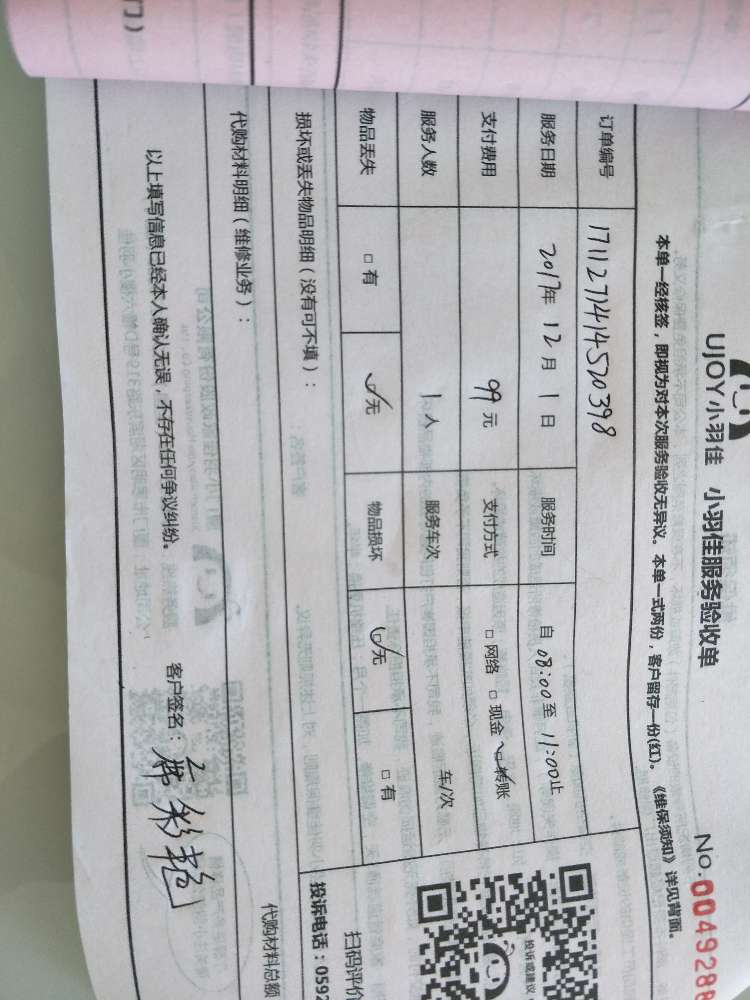 UJOY小羽佳 小羽佳服务验收单
No.0049285
本单一经核签，即视为对本次服务验收无异议。本单一式两份，客户留存一份(红)。《维保须知》详见背面。
订单编号 17112714145 20398
服务日期 2017年 12月 1日 服务时间 自 08:00 至 11:00止
支付费用 99元 支付方式 □网络 □现金 ☑转账
服务人数 1人 服务车次 车/次
物品丢失 □有 ☑无 物品损坏 ☑无 □有
损坏或丢失物品明细（没有可不填）：
扫码评价
投诉或建议
投诉电话：0592
代购材料明细（维修业务）：
代购材料总额
以上填写信息已经本人确认无误，不存在任何争议纠纷。 客户签名：